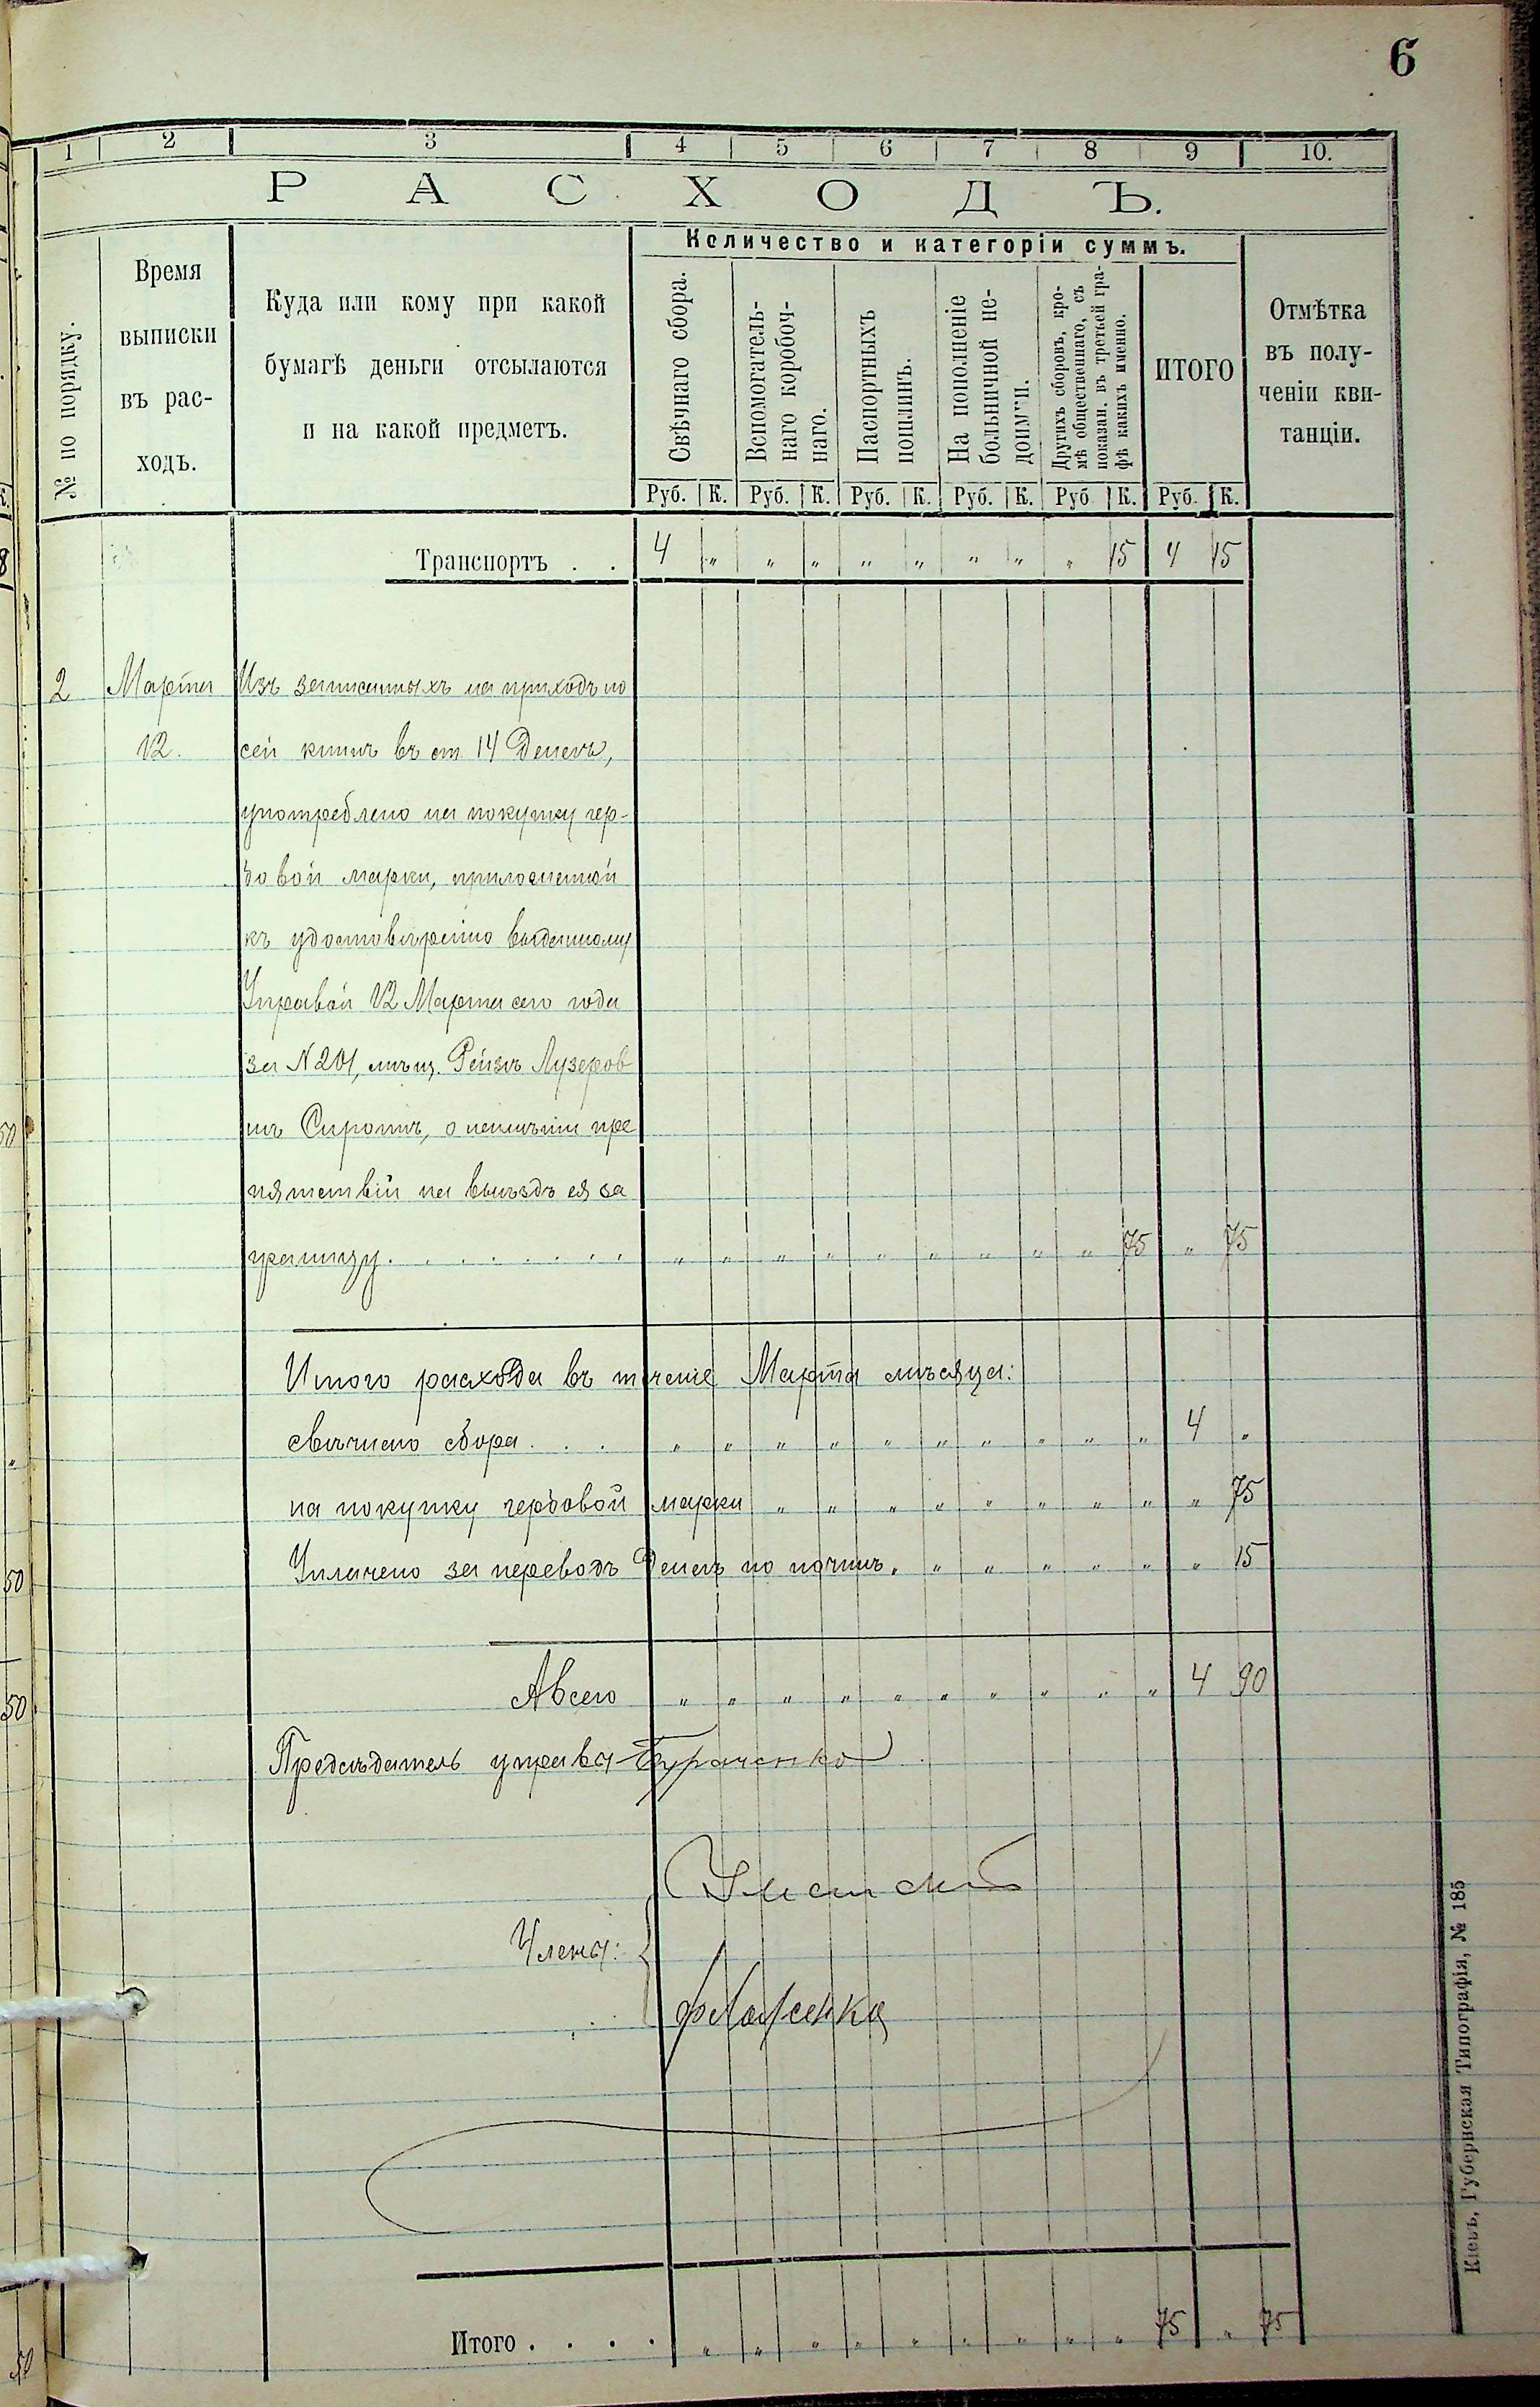 6
1 2 3 4 5 6 7 8 9 10.
РАСХОДЪ.
№ по порядку.
Время
выписки
въ рас-
ходъ.
Куда или кому при какой
бумагѣ деньги отсылаются
и на какой предметъ.
Количество и категоріи суммъ.
Свѣчнаго сбора.
Вспомогатель-
наго коробоч-
наго.
Паспортныхъ
пошлинъ.
На пополненіе
больничной не-
доимки.
Другихъ сборовъ, кро-
мѣ общественнаго, съ
показан. въ третьей гра-
фѣ какихъ именно.
ИТОГО
Отмѣтка
въ полу-
ченіи кви-
танціи.
Руб. К. Руб. К. Руб. К. Руб. К. Руб К. Руб. К.
Транспортъ . . 4 „ „ „ „ „ „ „ „ 15 4 15
2 Марта Изъ записанныхъ на приходъ по
12. сей книгѣ въ ст. 14 денегъ,
употреблено на покупку гер-
бовой марки, приложенной
къ удостовѣренію выданному
Управой 12 Марта сего года
за N 201, мѣщ. Рейзѣ Лузеров
нѣ Сиротѣ, о неимѣніи пре
пятствій на выѣздъ ея за
границу. . . . . . . . „ „ „ „ „ „ „ „ „ 75 „ 75
Итого расхода въ теченіе Марта мѣсяца:
свѣчнаго сбора . . . „ „ „ „ „ „ „ „ „ „ 4 „
на покупку гербовой марки „ „ „ „ „ „ „ „ „ 75
Уплачено за переводъ денегъ по почтѣ. „ „ „ „ „ „ 15
А всего „ „ „ „ „ „ „ „ „ „ 4 90
Предсѣдатель управы
Члены:
Итого . . . . „ „ „ „ „ „ „ „ „ 75 „ 75
Кіевъ, Губернская Типографія, № 185
8
50
„
50
50
50